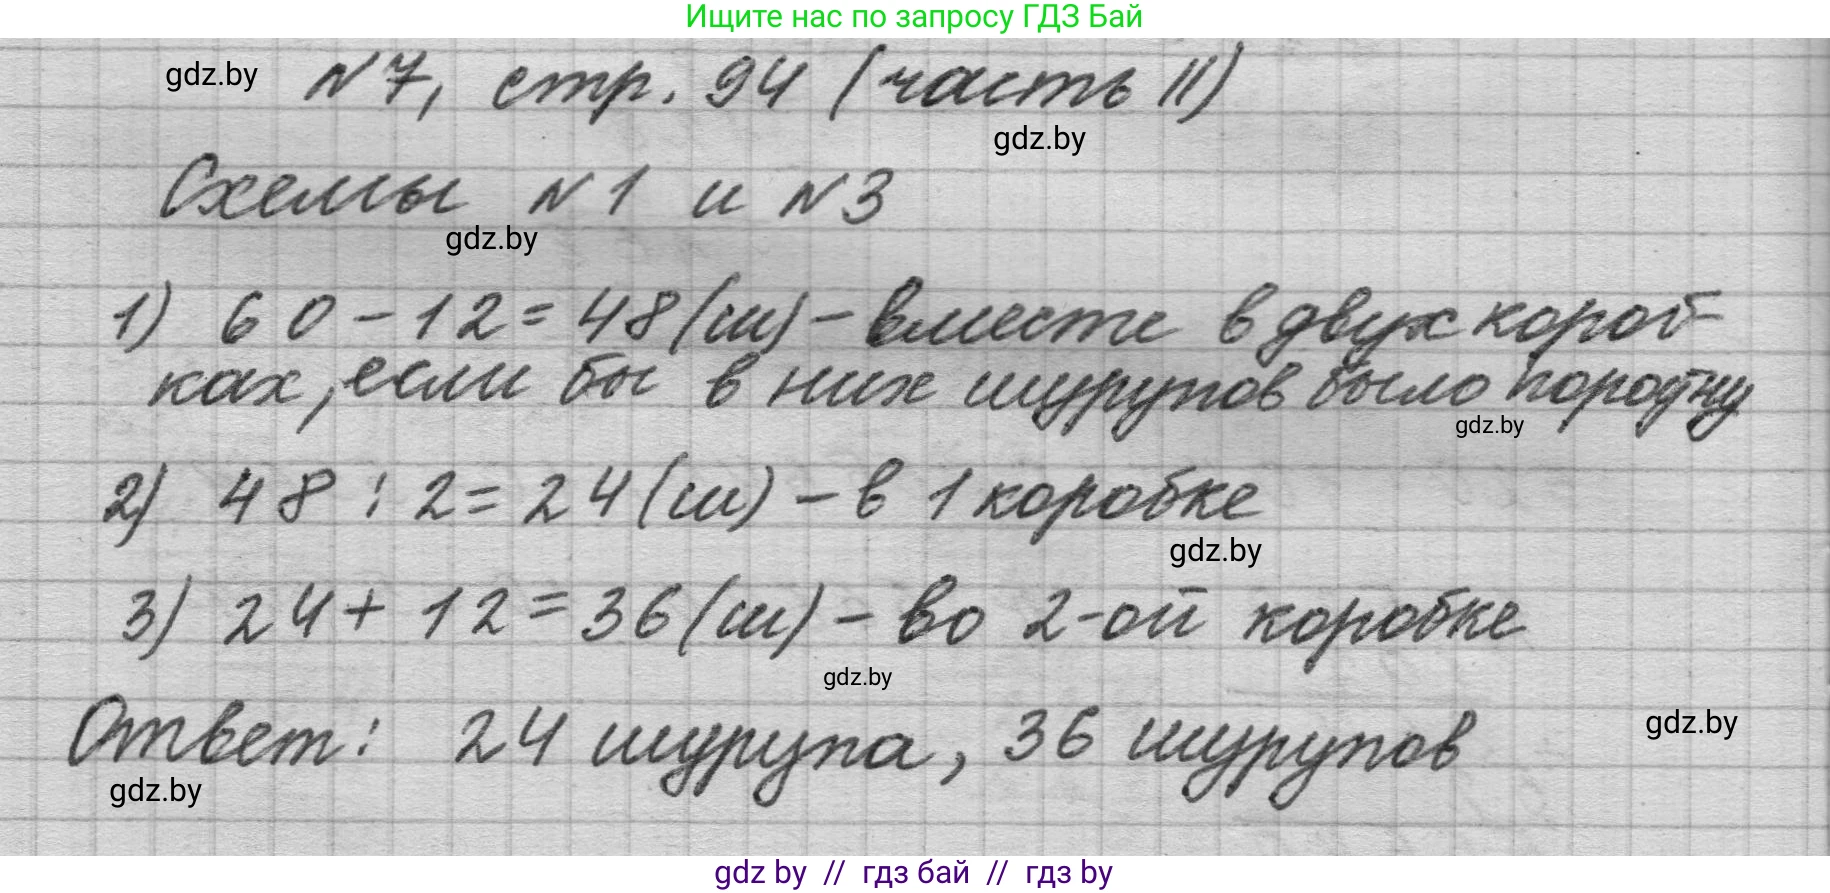 Ищите нас по запросу ГДЗ Бай
gdz.by N7, стр. 94 (часть II)
gdz.by
Схемы N1 и N3
gdz.by
1) 60-12=48(ш)-вместе в двух короб-
ках, если бы в них шурупов было поровну
gdz.by
2) 48:2=24(ш)-в 1 коробке
gdz.by
3) 24+12=36(ш)-во 2-ой коробке
gdz.by
Ответ: 24 шурупа, 36 шурупов
gdz.by
gdz.by
gdz by // гдз бай // гдз by